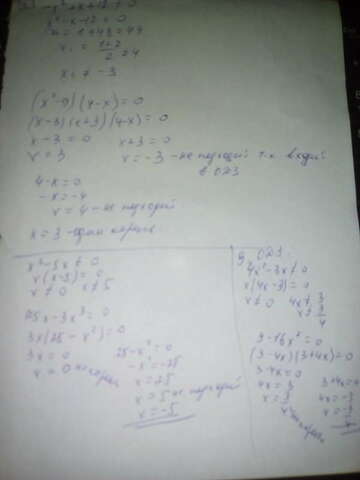 -x²+x+12≠0
x²-x-12=0
D=1+48=49
x₁=(1+7)/2=4
x₂≠-3
(x²-9)(4-x)=0
(x-3)(x+3)(4-x)=0
x-3=0 x+3=0
x=3 x=-3 -не подходит т.к входит
в ОДЗ
4-x=0
-x=-4
x=4-не подходит
x=3 -один корень
x²-5x≠0
x(x-5)=0
x≠0 x≠5
75x-3x³=0
3x(25-x²)=0
3x=0 25-x²=0
x=0 не корень -x²=-25
x=25
x=5 не подходит
x=-5
9. ОДЗ:
4x²-3x≠0
x(4x-3)=0
x≠0 4x≠3
x≠3/4
9-16x²=0
(3-4x)(3+4x)=0
3-4x=0 3+4x=0
4x=3 4x=-3
x=3/4 x=-3/4
не корень